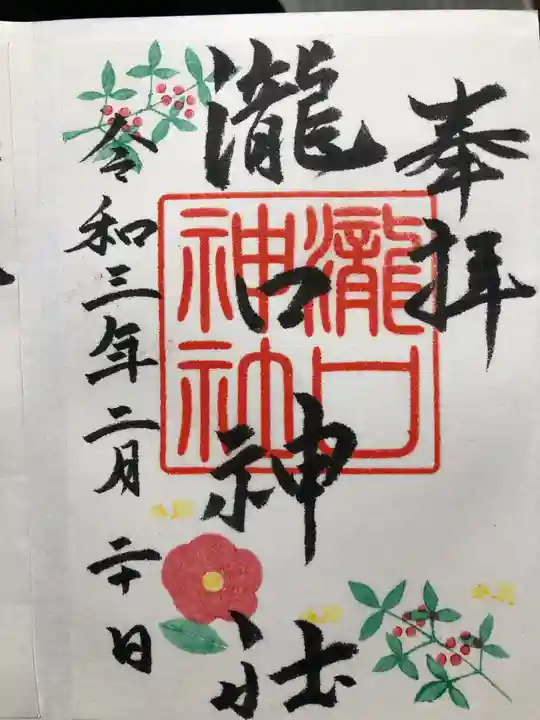 奉拝
瀧口神社
瀧口
神社
令和三年二月二十日